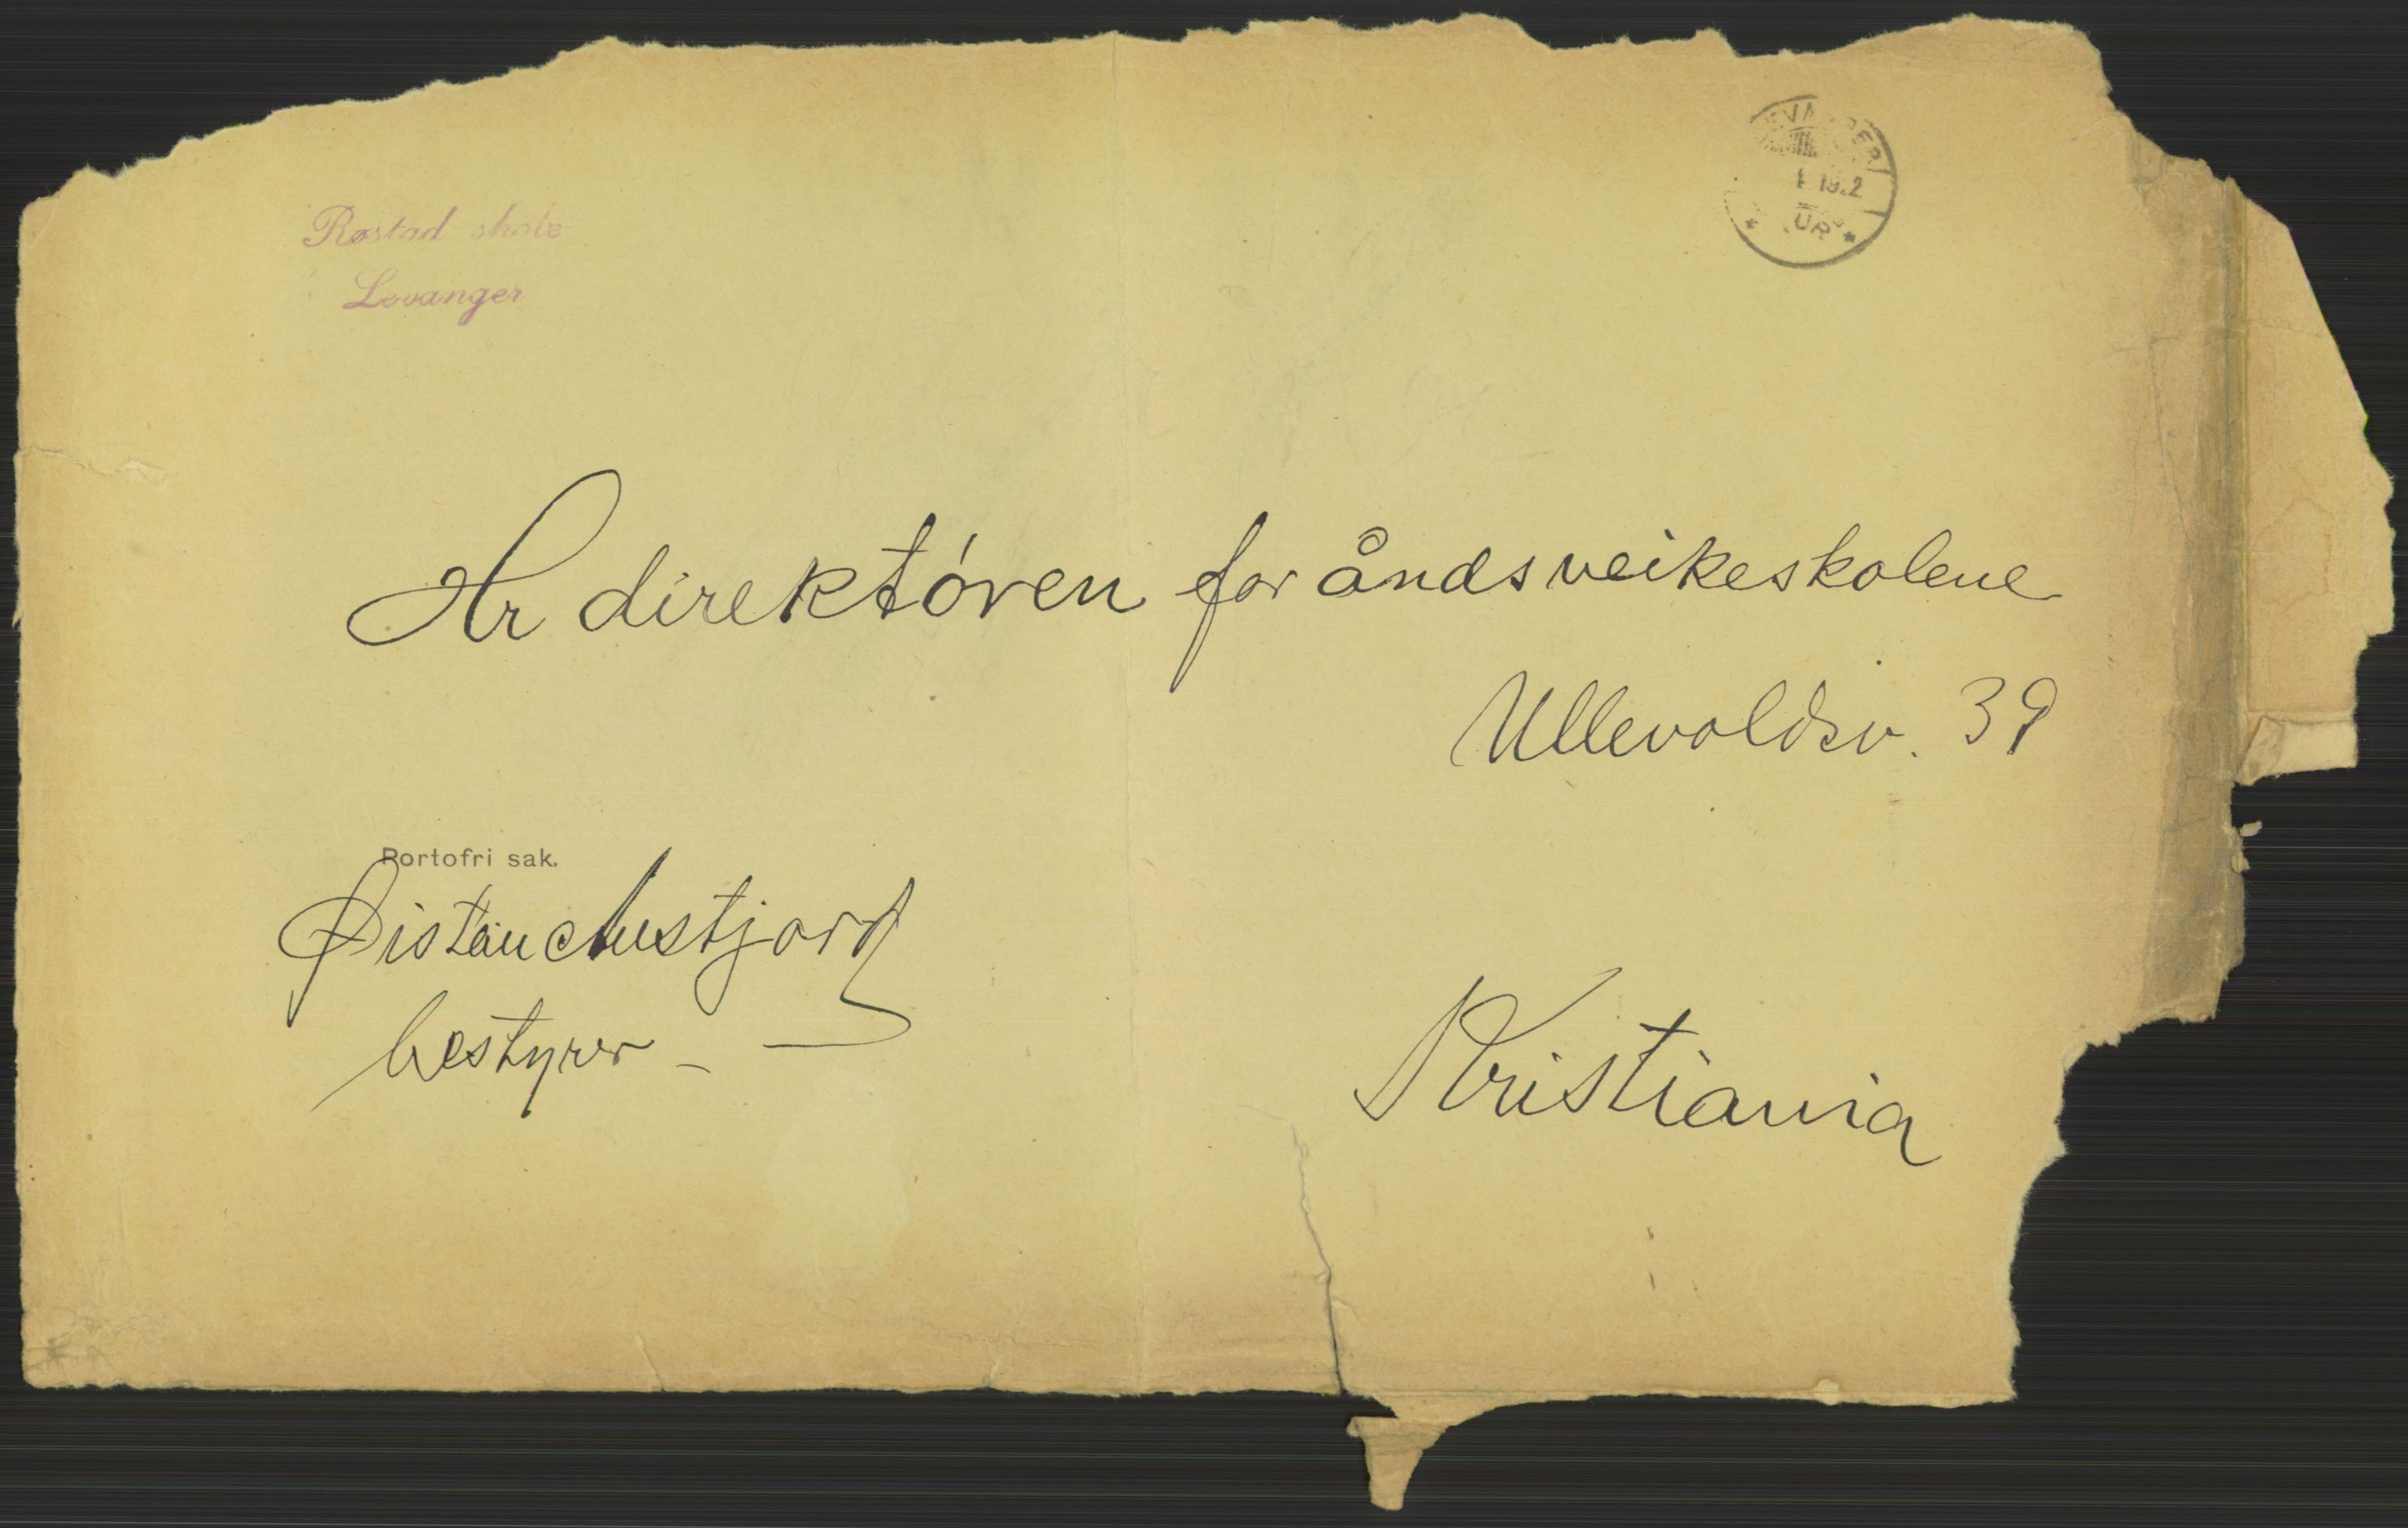 Røstad skole
Levanger
Hr direktóren for åndsveikeskolene
Ullevoldsv. 39
Portofri sak.
Øistein Austjord
bestyrer –
Kristiania